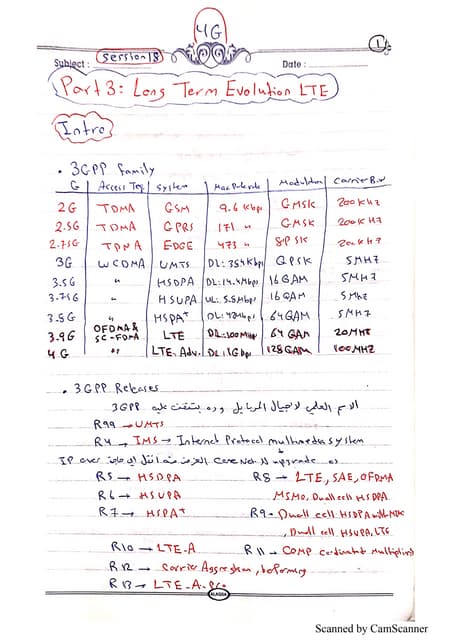 4G
1
Subject: Session 18
Date:
Part 3: Long Term Evolution LTE
Intro
. 3GPP family
G Access Tec System Max Data rate Modulation Carrier B.W
2G TDMA GSM 9.6 Kbps GMSK 200 KHZ
2.5G TDMA GPRS 171 " GMSK 200 KHZ
2.75G TDMA EDGE 473 " 8PSK 200 KHZ
3G WCDMA UMTS DL: 384Kbps QPSK 5MHZ
3.5G " HSDPA DL: 14.4Mbps 16QAM 5MHZ
3.75G " HSUPA UL: 5.5Mbps 16QAM 5MHZ
3.8G " HSPA+ DL: 42Mbps 64QAM 5MHZ
3.9G OFDMA & SC-FDMA LTE DL: 100MHz 64 QAM 20MHZ
4G " LTE. Adv. DL: 1Gbps 128QAM 100MHZ
. 3GPP Releases
الاسم العلمي لاجيال الموبايل وده بتتفق عليه 3GPP
R99 → UMTS
R4 → IMS → Internet Protocol multimedia system
ده upgrade لل Core Net العرض منه انقل اي حاجة IP over
R5 → HSDPA R8 → LTE, SAE, OFDMA
R6 → HSUPA MIMO, Dual cell HSDPA
R7 → HSPA+ R9 → Duall cell HSDPA with MIMO
, Duall cell HSUPA, LTE
R10 → LTE-A R11 → COMP
R12 → Carrier Aggregation, beforming
R13 → LTE-A-Pro
ALASRA
Scanned by CamScanner